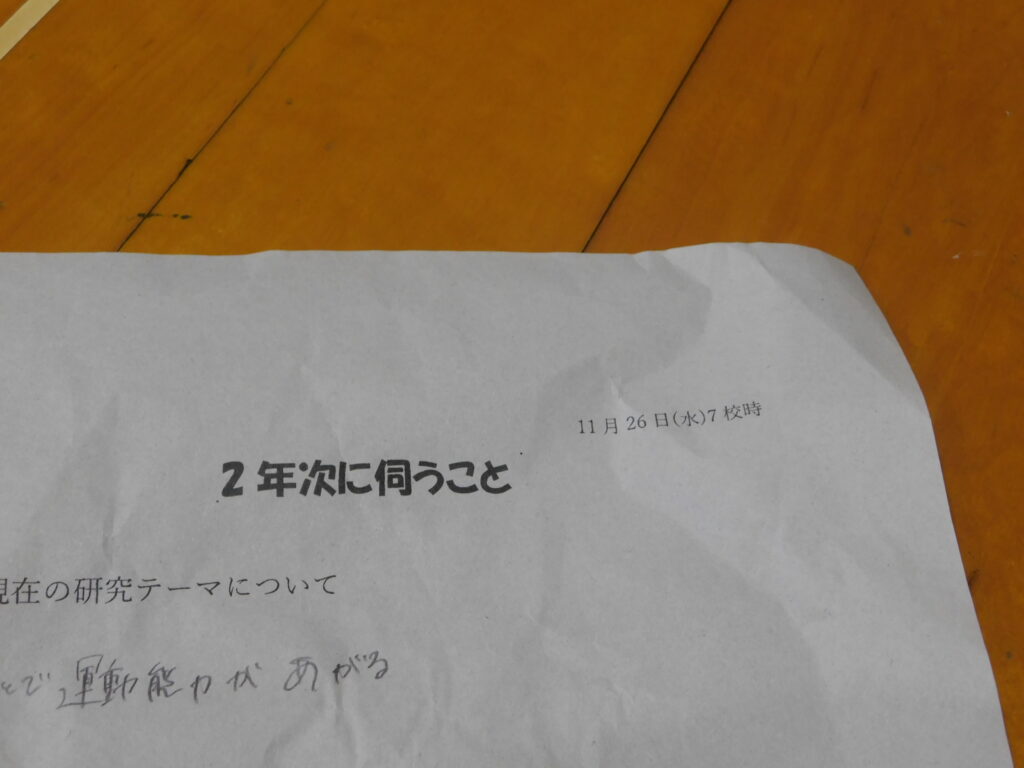 11月26日(水)7校時
2年次に伺うこと
現在の研究テーマについて
とで運動能力があがる